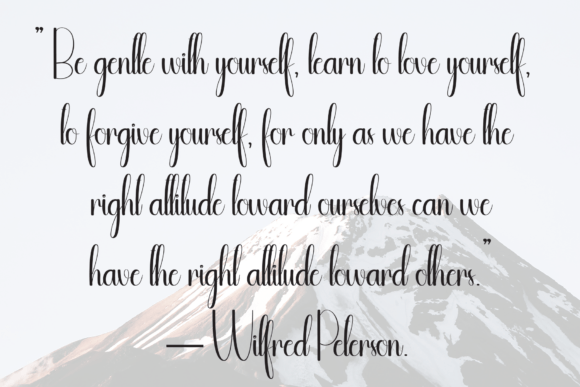 "Be gentle with yourself, learn to love yourself,
to forgive yourself, for only as we have the
right attitude toward ourselves can we
have the right attitude toward others."
— Wilfred Peterson.